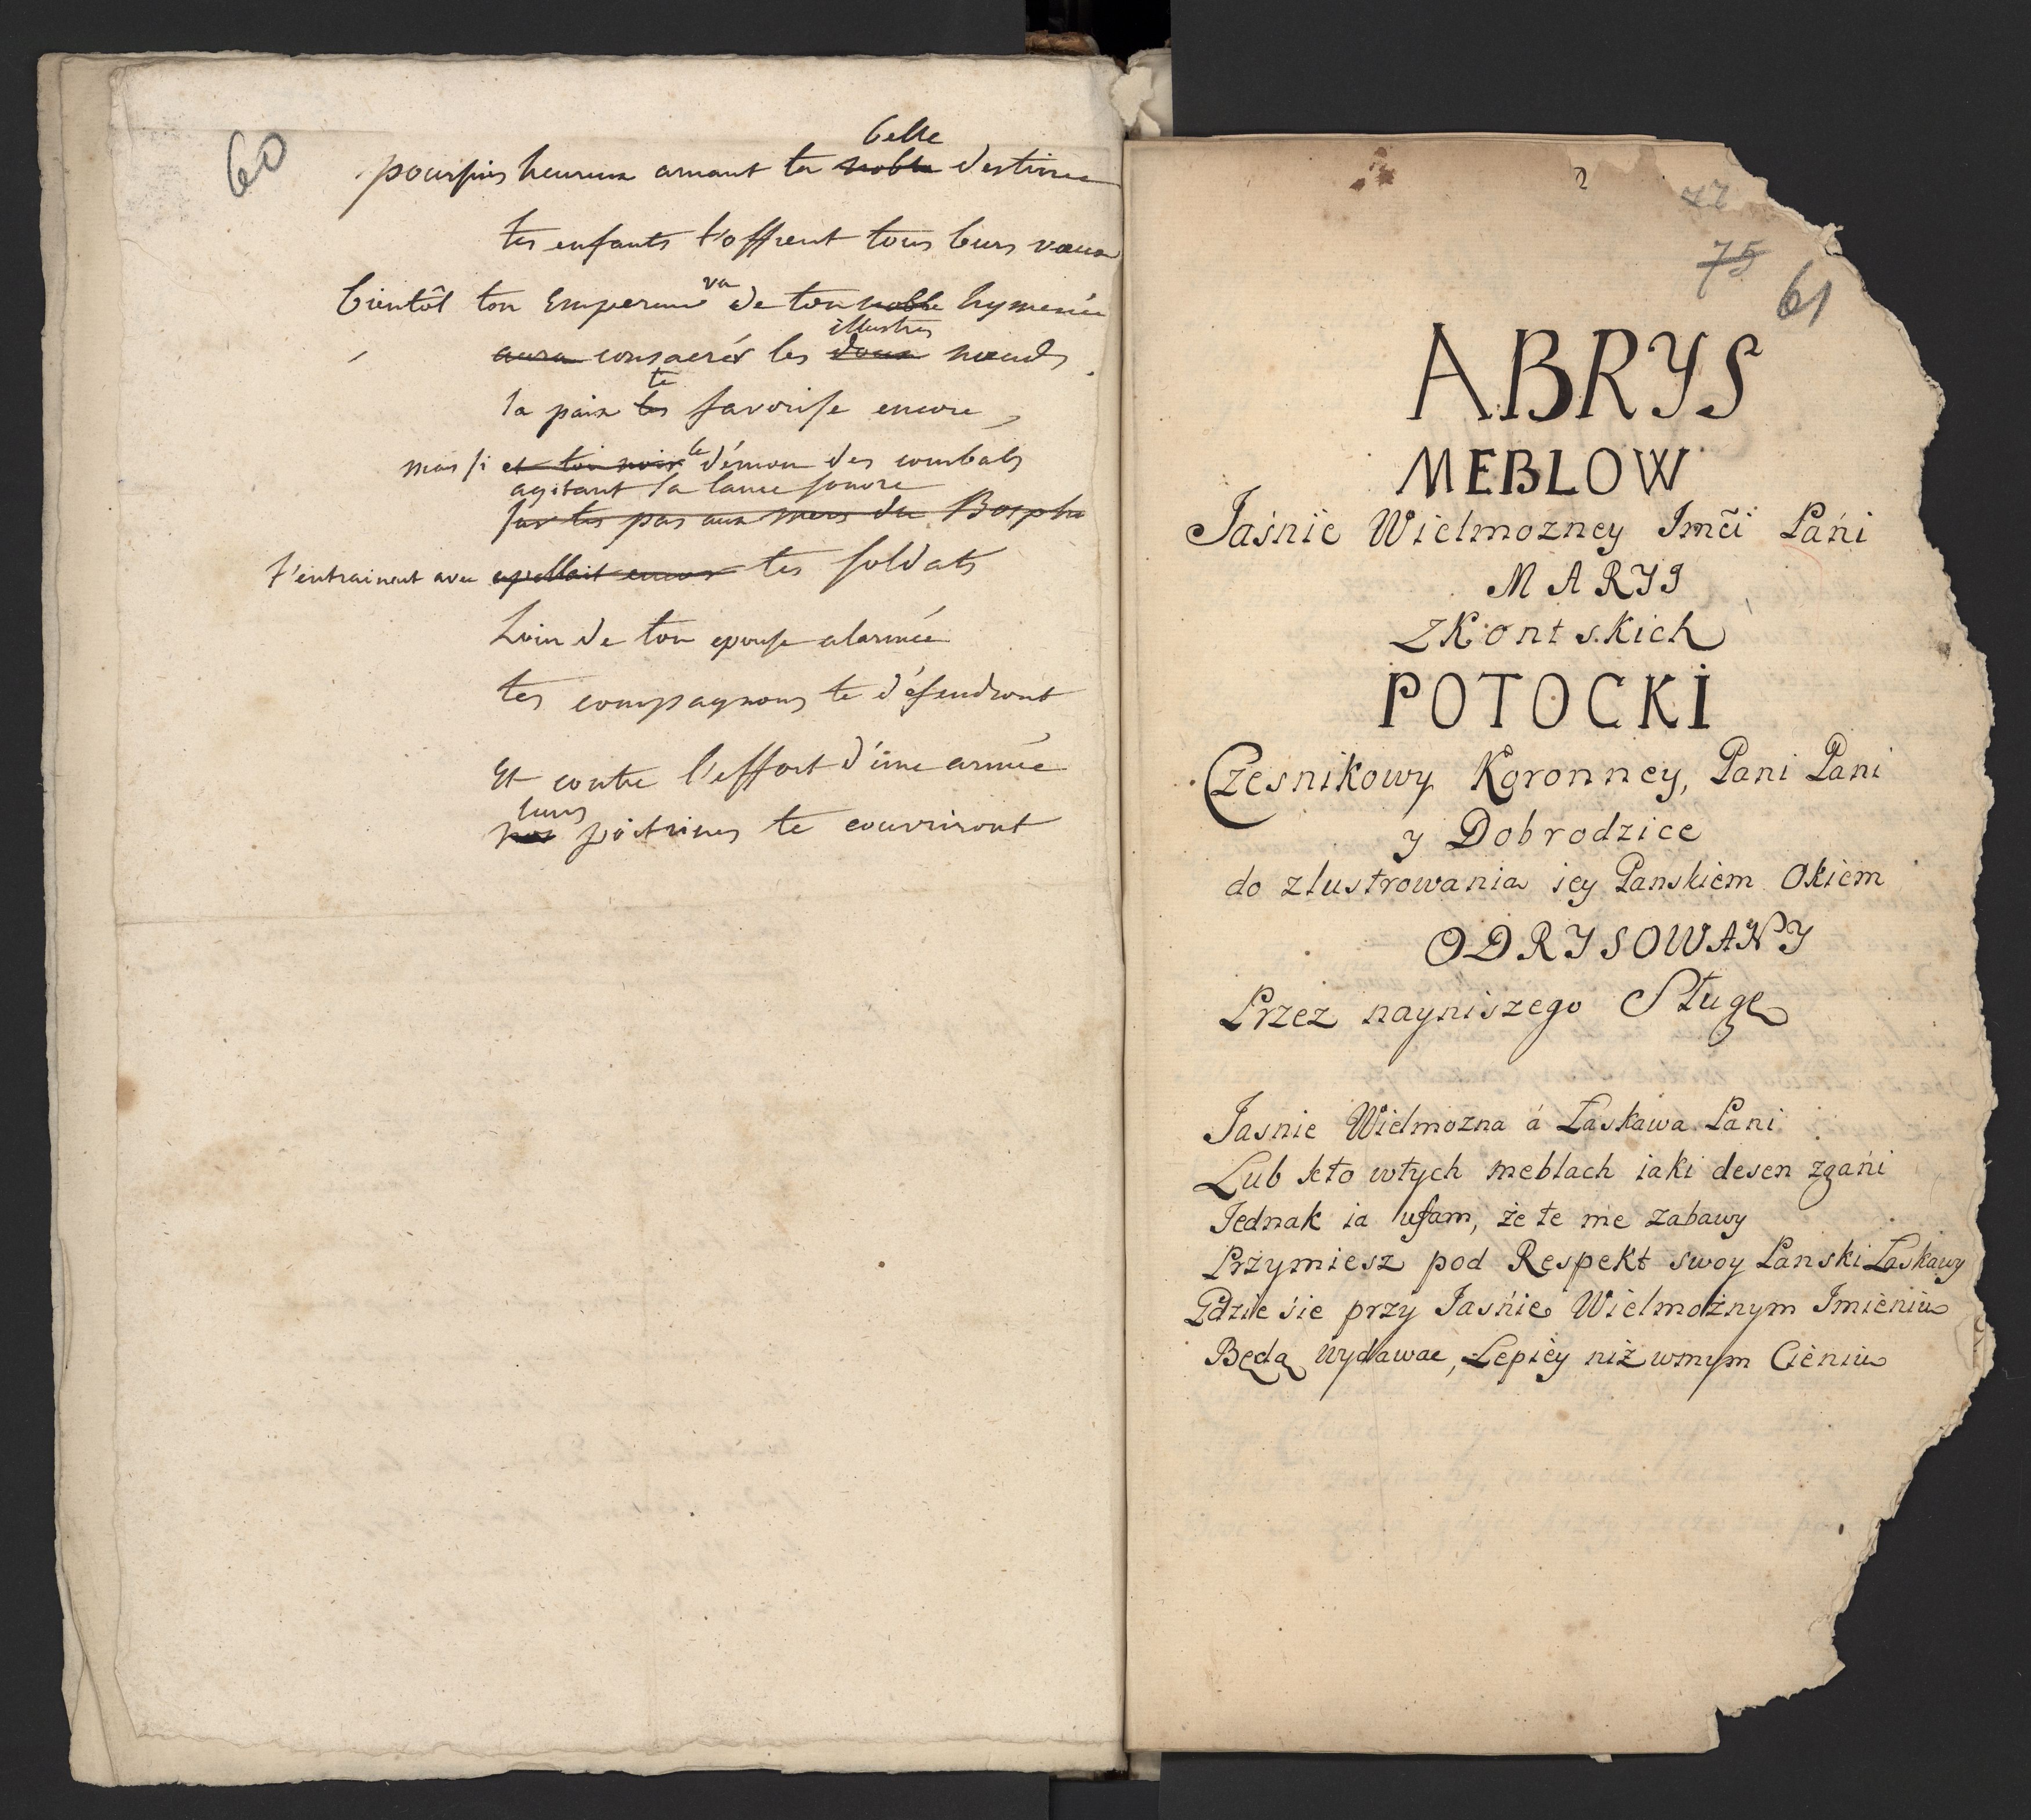 60
belle
poursuis heureux amant ta noble destinée
tes enfants t'offrent tous leurs vœux
va
bientôt ton Empereur de ton noble hymenée
illustres
aura consacrér les doux nœuds
te
la paix les favorise encore,
le
mais si et ton noir démon des combats
agitant sa lance sonore
sur tes pas aux mers du Bosphe
t'entrainent avec apellait encor tes soldats
Loin de ton epouse alarmée
tes compagnons te défendront
Et contre l'effort d'une armée
leurs
nos poitrines te couvriront
2
75
61
ABRYS
MEBLOW
Jaśnie Wielmozney Jmći Pańi
MARYI
Zkontskich
POTOCKI
Czesnikowy Koronney, Pani Pani
y Dobrodzice
do zlustrowania iey Panskiem Okiem
ODRYSOWANY
Przez nayniszego Sługę
Jasnie Wielmozna á Łaskawa Pani
Lub kto wtych meblach iaki desen zgańi
Jednak ia ufam, że te me zabawy
Przymiesz pod Respekt swoy Panski Łaskawy
Gdzie śie przy Jaśnie Wielmożnym Imieniu
Będą wydawac, Lepiey niż wmym Cieniu